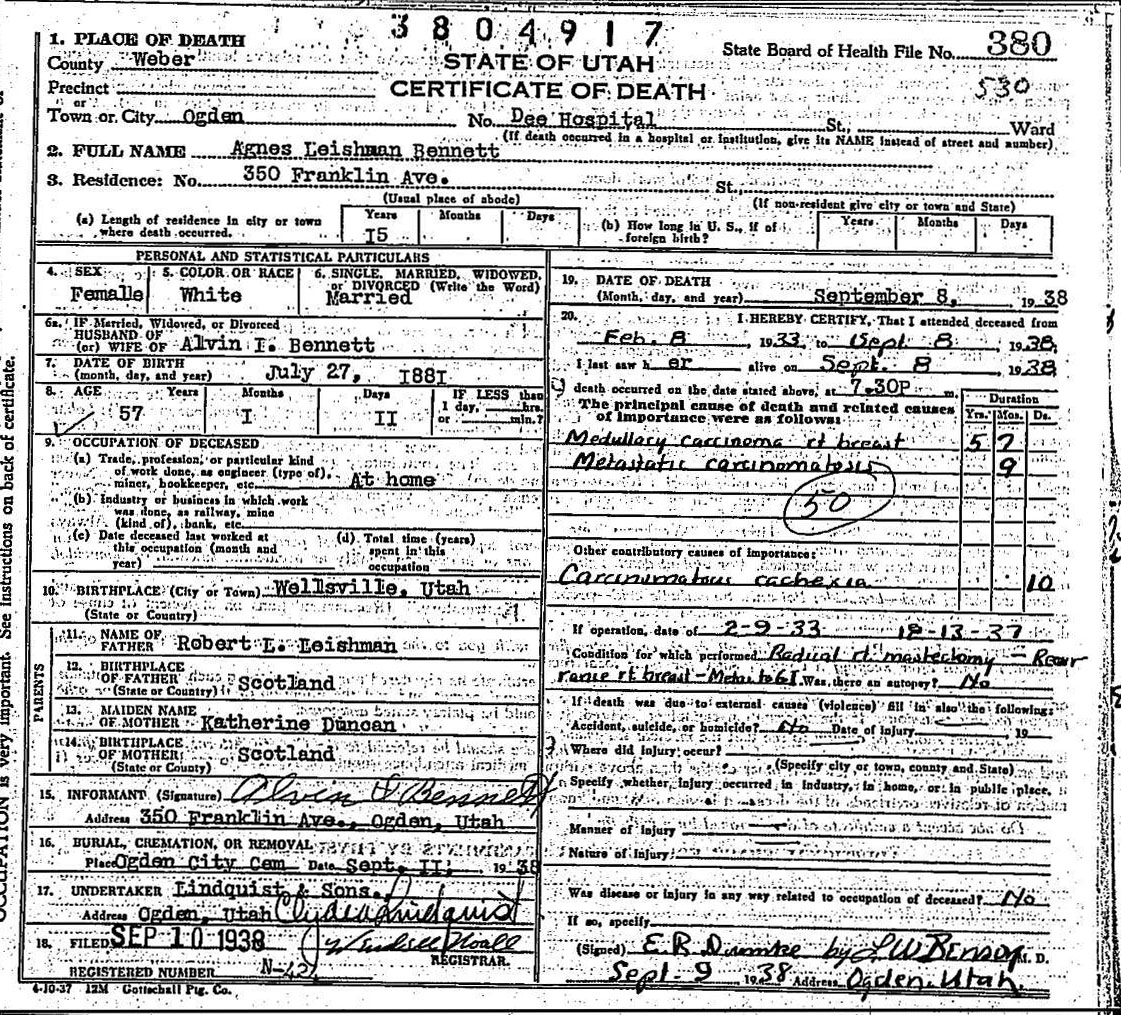 3804917
1. PLACE OF DEATH
State Board of Health File No. 380
County Weber
STATE OF UTAH
Precinct
CERTIFICATE OF DEATH
530
or
Town or City Ogden No. Dee Hospital St., Ward
(If death occurred in a hospital or institution, give its NAME instead of street and number)
2. FULL NAME Agnes Leishman Bennett
3. Residence: No. 350 Franklin Ave. St.,
(Usual place of abode) (If non-resident give city or town and State)
(a) Length of residence in city or town where death occurred. Years Months Days
I5
(b) How long in U. S., if of foreign birth? Years Months Days
PERSONAL AND STATISTICAL PARTICULARS
4. SEX 5. COLOR OR RACE 6. SINGLE, MARRIED, WIDOWED,
or DIVORCED (Write the Word)
Female White Married
6a. IF Married, Widowed, or Divorced
HUSBAND OF
(or) WIFE OF Alvin I. Bennett
7. DATE OF BIRTH
(month, day, and year) July 27, I88I
8. AGE Years Months Days IF LESS than
1 day, hrs.
57 I II or min.?
9. OCCUPATION OF DECEASED
(a) Trade, profession, or particular kind
of work done, as engineer (type of),
miner, bookkeeper, etc. At home
(b) Industry or business in which work
was done, as railway, mine
(kind of), bank, etc.
(c) Date deceased last worked at
this occupation (month and
year)
(d) Total time (years)
spent in this
occupation
10. BIRTHPLACE (City or Town) Wellsville, Utah
(State or Country)
PARENTS
11. NAME OF
FATHER Robert L. Leishman
12. BIRTHPLACE
OF FATHER Scotland
(State or Country)
13. MAIDEN NAME
OF MOTHER Katherine Duncan
14. BIRTHPLACE
OF MOTHER Scotland
(State or Country)
15. INFORMANT (Signature) Alvin I Bennett
Address 350 Franklin Ave., Ogden, Utah
16. BURIAL, CREMATION, OR REMOVAL
Place Ogden City Cem Date Sept. II, 1938
17. UNDERTAKER Lindquist & Sons.
Address Ogden, Utah Clyde Lindquist
18. FILED SEP 10 1938
REGISTRAR.
REGISTERED NUMBER
4-10-37 12M Gottschall Ptg. Co.
19. DATE OF DEATH
(Month, day, and year) September 8, 1938
20. I HEREBY CERTIFY, That I attended deceased from
Feb. 8, 1933, to Sept 8 1938,
I last saw h er alive on Sept. 8 1938
death occurred on the date stated above, at 7.30P m.
The principal cause of death and related causes
of importance were as follows:
Duration
Yrs. Mos. Ds.
Medullary carcinoma rt breast 5 7
Metastatic carcinomatosis 9
50
Other contributory causes of importance:
Carcinomatous cachexia 10
If operation, date of 2-9-33 12-13-37
Condition for which performed Radical rt. mastectomy - Recur
rance rt breast - Metas to GI. Was there an autopsy? No
If death was due to external causes (violence) fill in also the following:
Accident, suicide, or homicide? No Date of injury 19
Where did injury occur?
(Specify city or town, county and State)
Specify whether injury occurred in industry, in home, or in public place.
Manner of injury
Nature of injury
Was disease or injury in any way related to occupation of deceased? No
If so, specify
(Signed) E. R. Dumke by L. W. Benson M. D.
Sept - 9 1938 Address Ogden, Utah.
OCCUPATION is very important. See instructions on back of certificate.